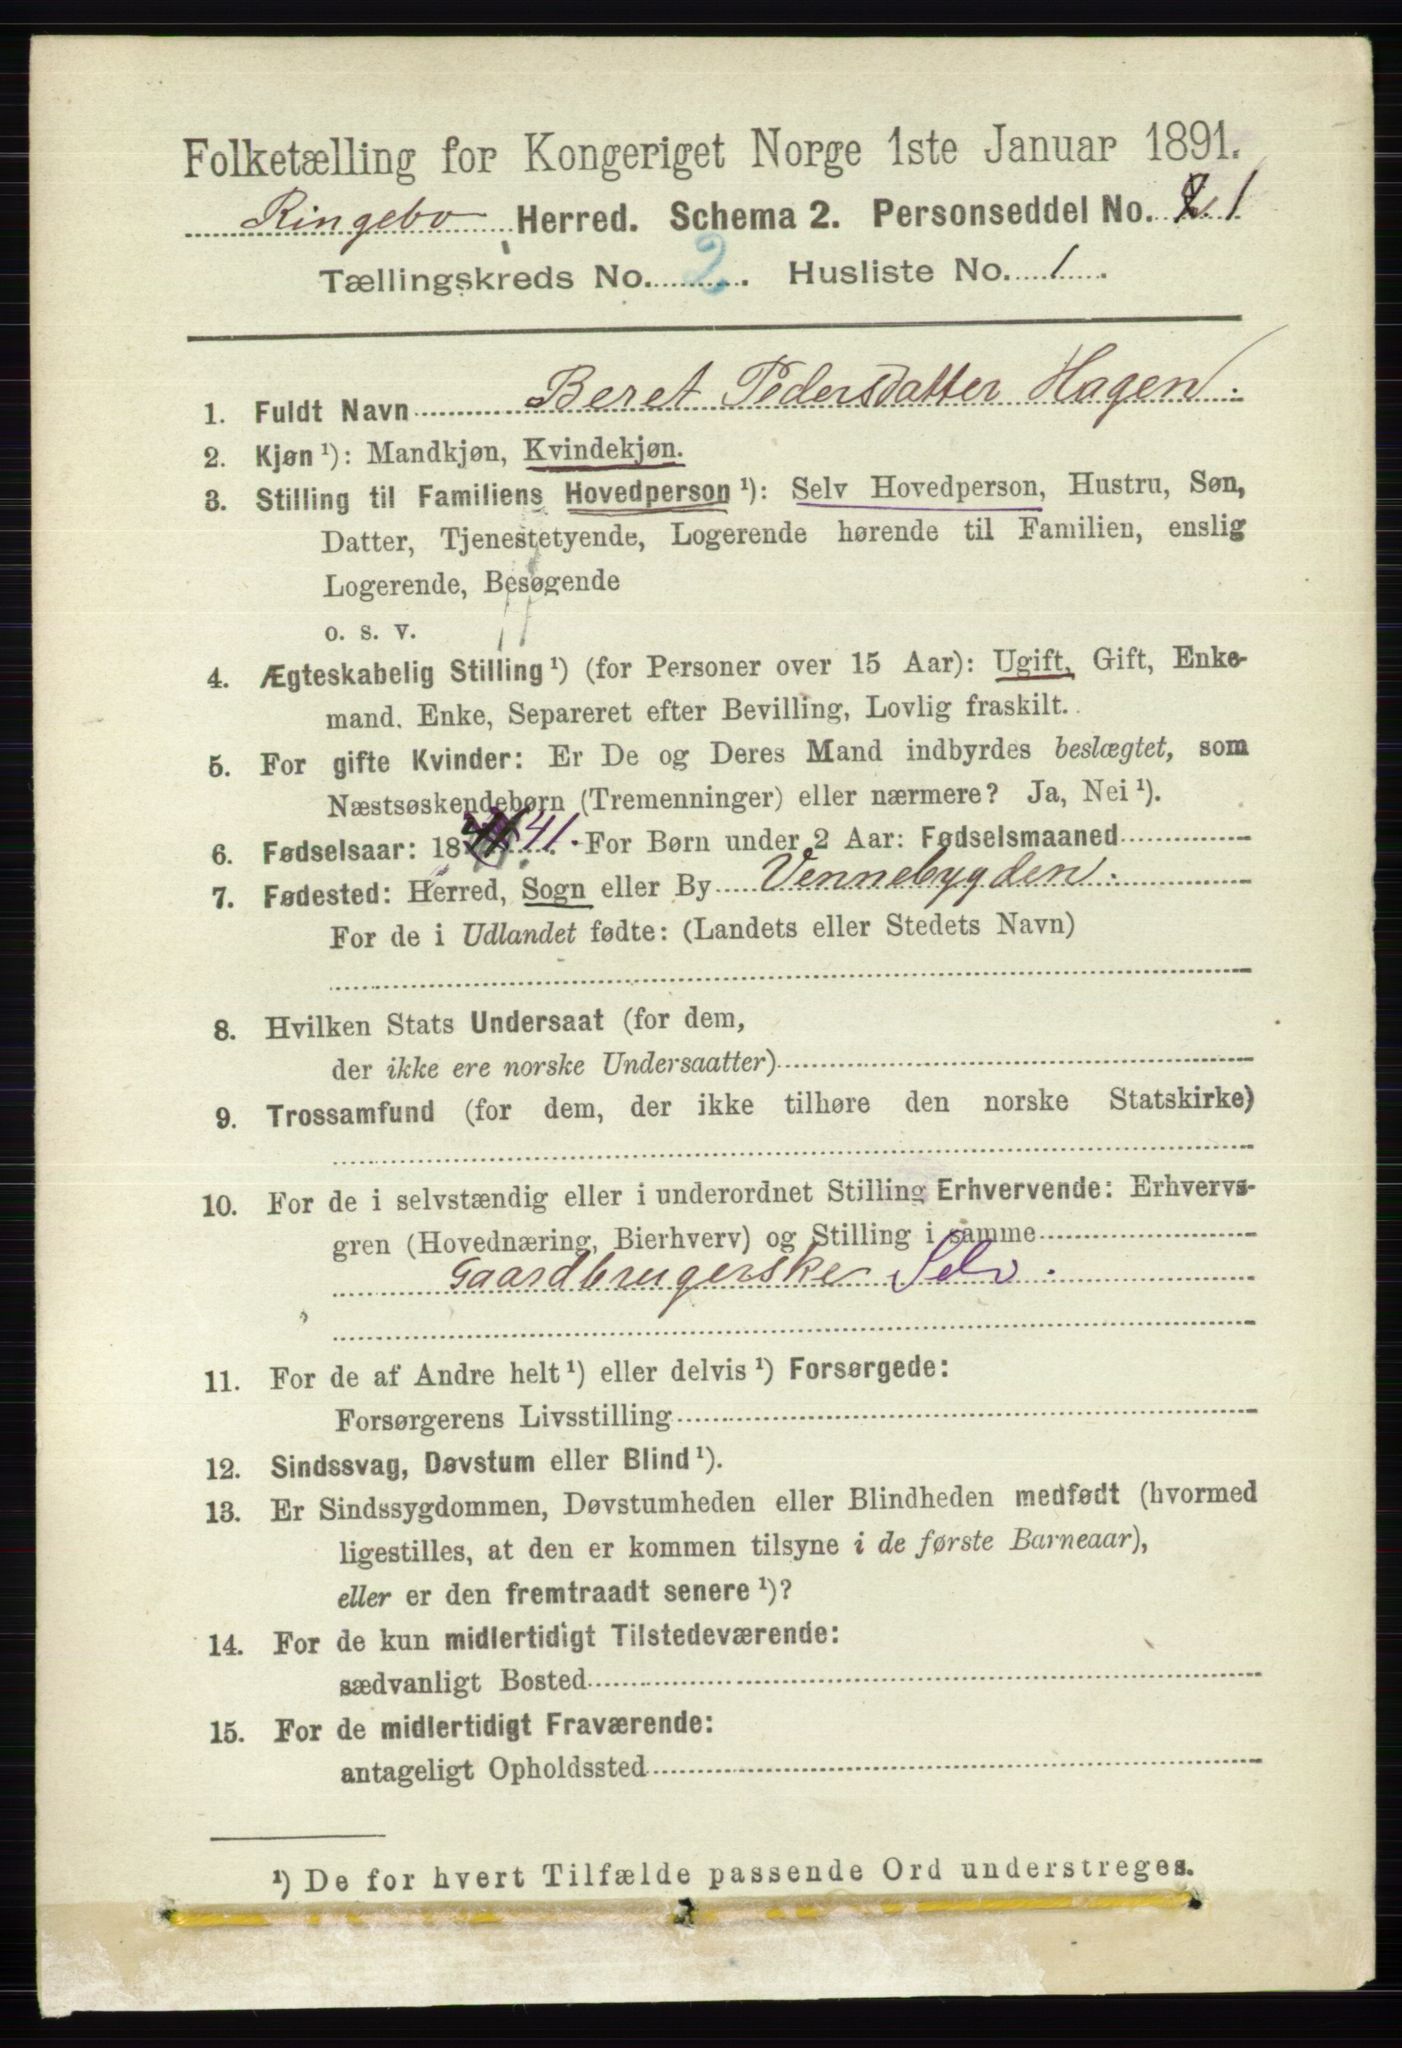 Folketælling for Kongeriget Norge 1ste Januar 1891.
Ringebo Herred. Schema 2. Personseddel No. 1
Tællingskreds No. 2. Husliste No. 1.
1. Fuldt Navn Beret Pedersdatter Hagen.
2. Kjøn ¹): Mandkjøn, Kvindekjøn.
3. Stilling til Familiens Hovedperson ¹): Selv Hovedperson, Hustru, Søn,
Datter, Tjenestetyende, Logerende hørende til Familien, enslig
Logerende, Besøgende
o. s. v.
4. Ægteskabelig Stilling ¹) (for Personer over 15 Aar): Ugift, Gift, Enke-
mand, Enke, Separeret efter Bevilling, Lovlig fraskilt.
5. For gifte Kvinder: Er De og Deres Mand indbyrdes beslægtet, som
Næstsøskendebørn (Tremenninger) eller nærmere? Ja, Nei ¹).
6. Fødselsaar: 18 41. For Børn under 2 Aar: Fødselsmaaned
7. Fødested: Herred, Sogn eller By Vennebygden.
For de i Udlandet fødte: (Landets eller Stedets Navn)
8. Hvilken Stats Undersaat (for dem,
der ikke ere norske Undersaatter)
9. Trossamfund (for dem, der ikke tilhøre den norske Statskirke)
10. For de i selvstændig eller i underordnet Stilling Erhvervende: Erhvervs-
gren (Hovednæring, Bierhverv) og Stilling i samme
Gaardbrugerske Selv.
11. For de af Andre helt ¹) eller delvis ¹) Forsørgede:
Forsørgerens Livsstilling
12. Sindssvag, Døvstum eller Blind ¹).
13. Er Sindssygdommen, Døvstumheden eller Blindheden medfødt (hvormed
ligestilles, at den er kommen tilsyne i de første Barneaar),
eller er den fremtraadt senere ¹)?
14. For de kun midlertidigt Tilstedeværende:
sædvanligt Bosted
15. For de midlertidigt Fraværende:
antageligt Opholdssted
¹) De for hvert Tilfælde passende Ord understreges.